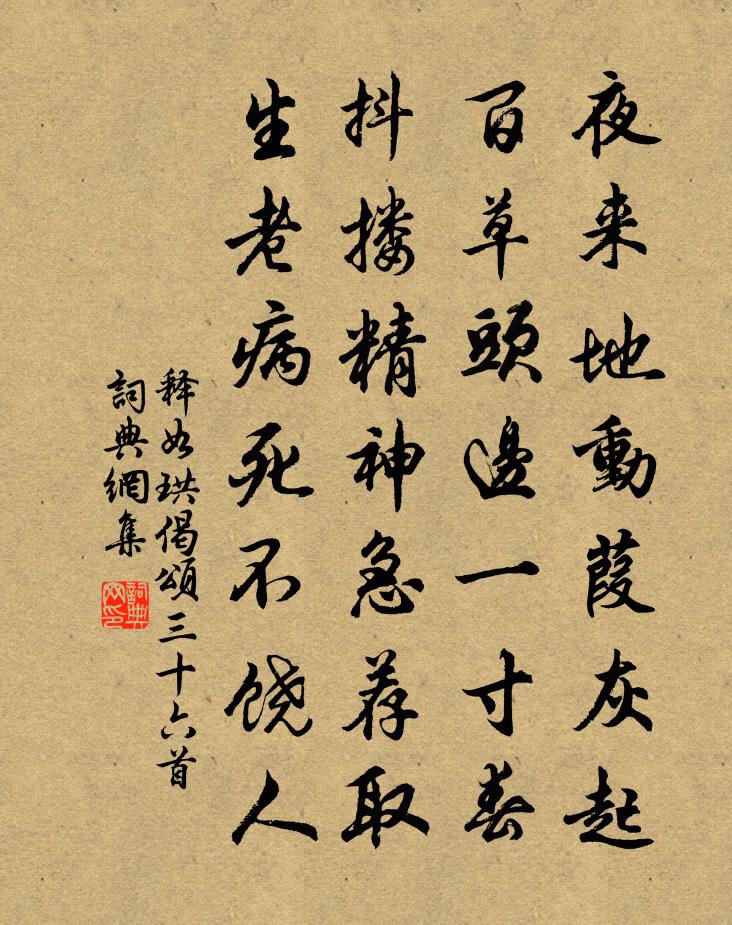 夜来地動葭灰起
百草頭邊一寸春
抖搂精神急荐取
生老病死不饶人
释如珙偈頌三十六首
詞典網集
詞典网印